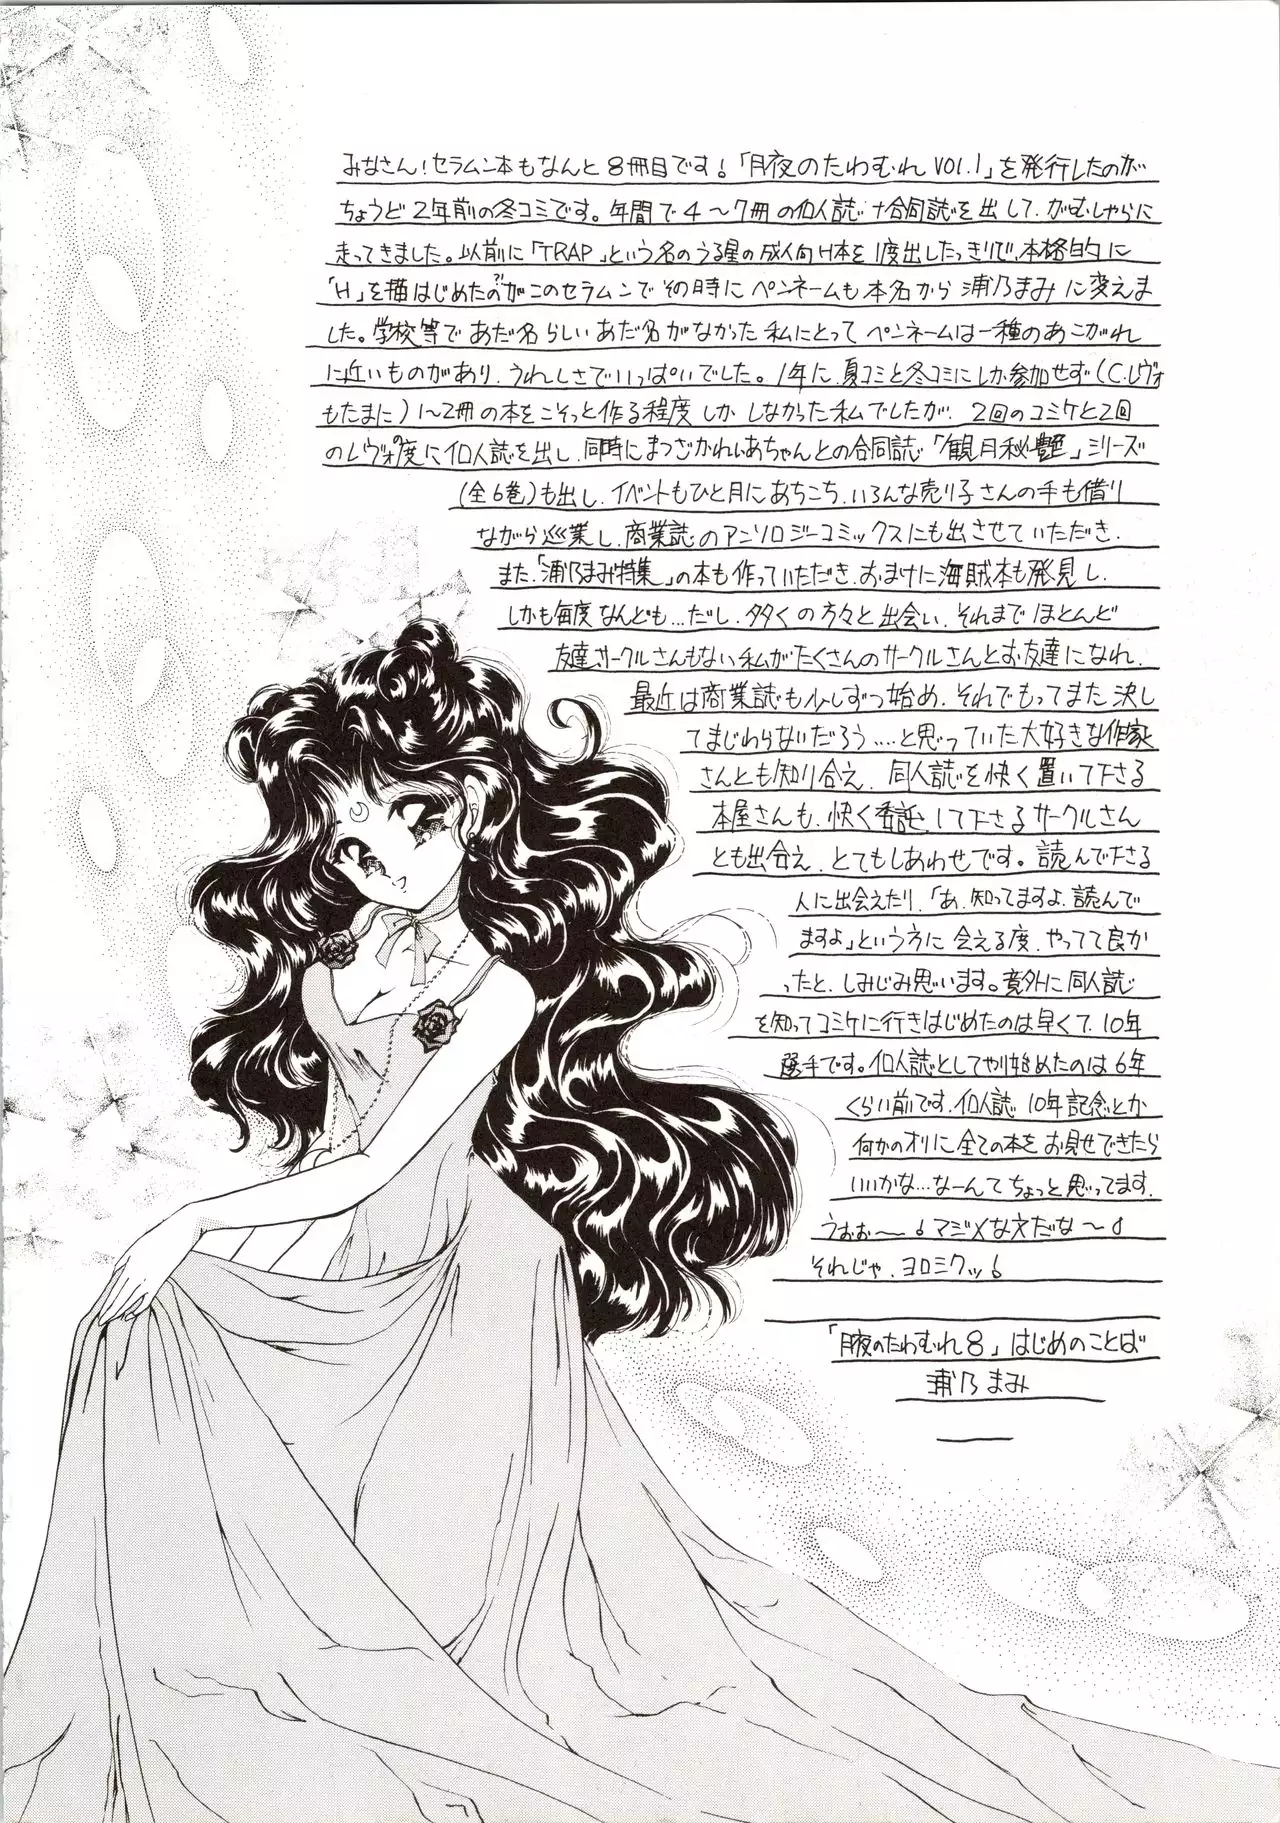 みなさん!セラムン本もなんと8冊目です!「月夜のたわむれVOL.1」を発行したのが
ちょうど2年前の冬コミです。年間で4〜7冊の個人誌+合同誌を出して、がむしゃらに
走ってきました。以前に「TRAP」という名のうる星の成人向H本を1度出したっきりで、本格的に
「H」を描はじめたのがこのセラムンでその時にペンネームも本名から浦乃まみに変えま
した。学校等であだ名らしいあだ名がなかった私にとってペンネームは一種のあこがれ
に近いものがあり、うれしさでいっぱいでした。1年に、夏コミと冬コミにしか参加せず(C.レヴォ
もたまに)1〜2冊の本をこそっと作る程度しかしなかった私でしたが、2回のコミケと2回
のレヴォ度に個人誌を出し、同時にまつざかれいあちゃんとの合同誌「観月秘艶」シリーズ
(全6巻)も出し、イベントもひと月にあちこち、いろんな売り子さんの手も借り
ながら巡業し、商業誌のアンソロジーコミックスにも出させていただき、
また、「浦乃まみ特集」の本も作っていただき、おまけに海賊本も発見し、
しかも毎度なんども…だし、多くの方々と出会い、それまでほとんど
友達サークルさんもない私がたくさんのサークルさんとお友達になれ、
最近は商業誌も少しずつ始め、それでもってまた決し
てまじわらないだろう…と思っていた大好きな作家
さんとも知り合え、同人誌を快く置いて下さる
本屋さんも、快く委託して下さるサークルさん
とも出会え、とてもしあわせです。読んで下さる
人に出会えたり、「あ、知ってますよ、読んで
ますよ」という方に会える度、やってて良か
ったと、しみじみ思います。意外に同人誌
を知ってコミケに行きはじめたのは早くて、10年
選手です。個人誌としてやり始めたのは6年
くらい前です。個人誌10年記念とか
何かのオリに全ての本をお見せできたら
いいかな…なーんてちょっと思ってます。
うおお〜!マジメな文だな〜!
それじゃ、ヨロミクッ!
「月夜のたわむれ8」はじめのことば
浦乃まみ